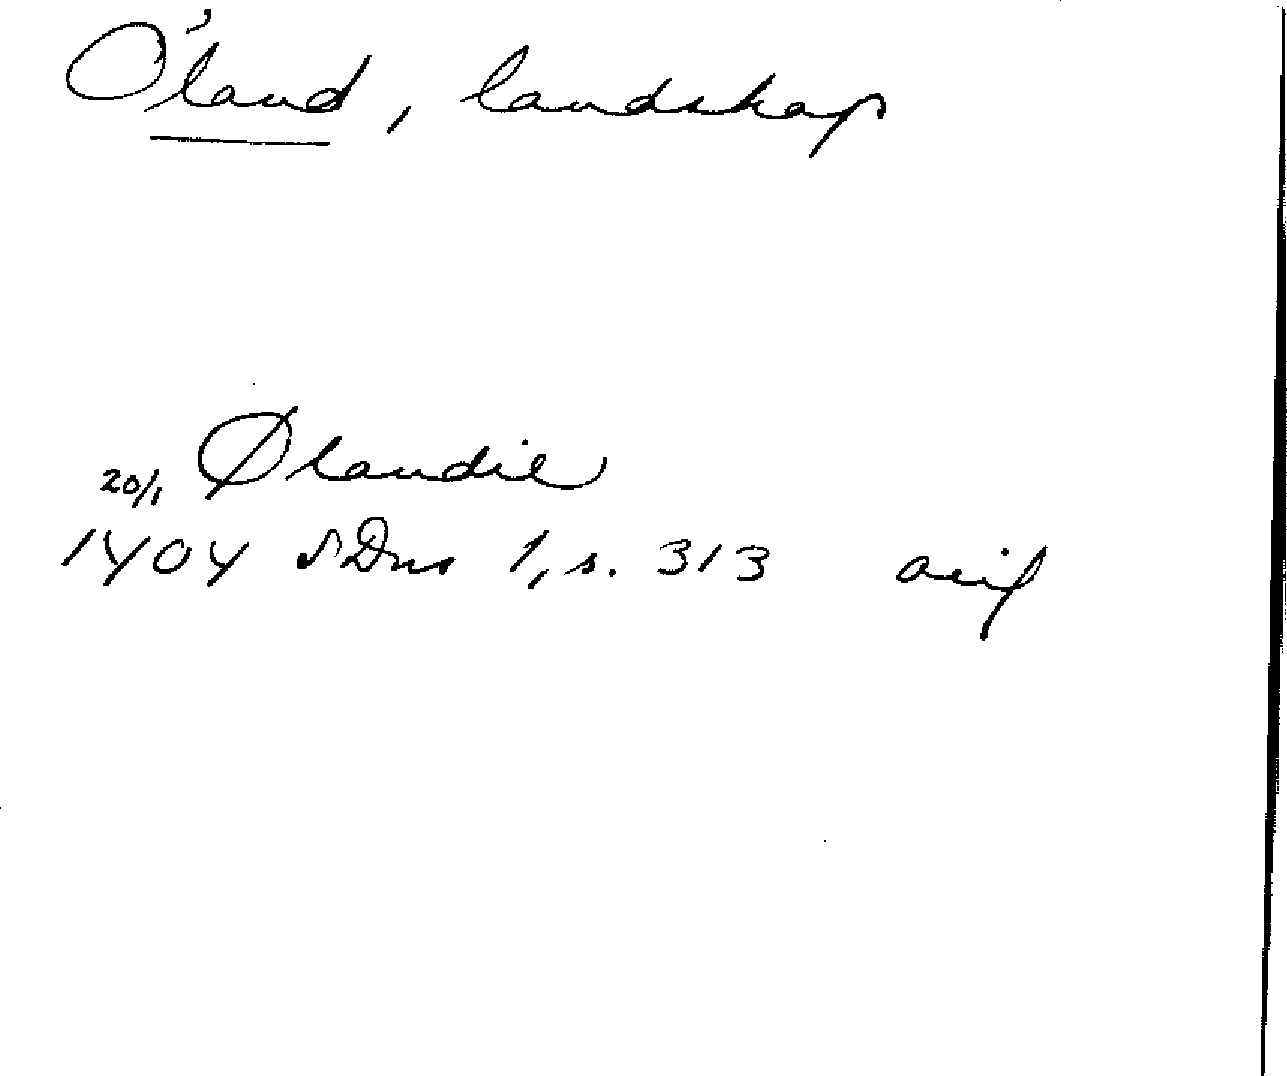 Öland, landskap
20/1 Ølandie
1404 SDns 1, s. 313 avif